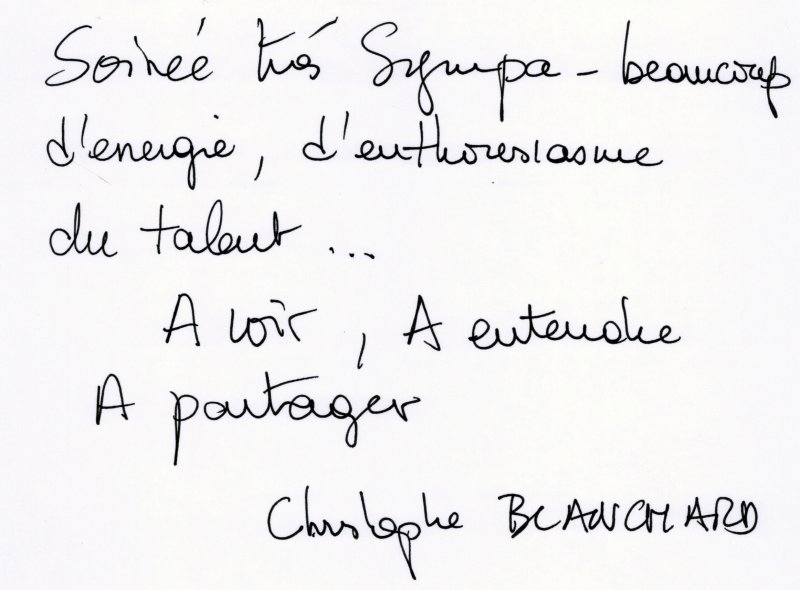 Soirée très Sympa - beaucoup
d'energie, d'enthousiasme
du talent ...
A voir, A entendre
A partager
Christophe BLANCHARD